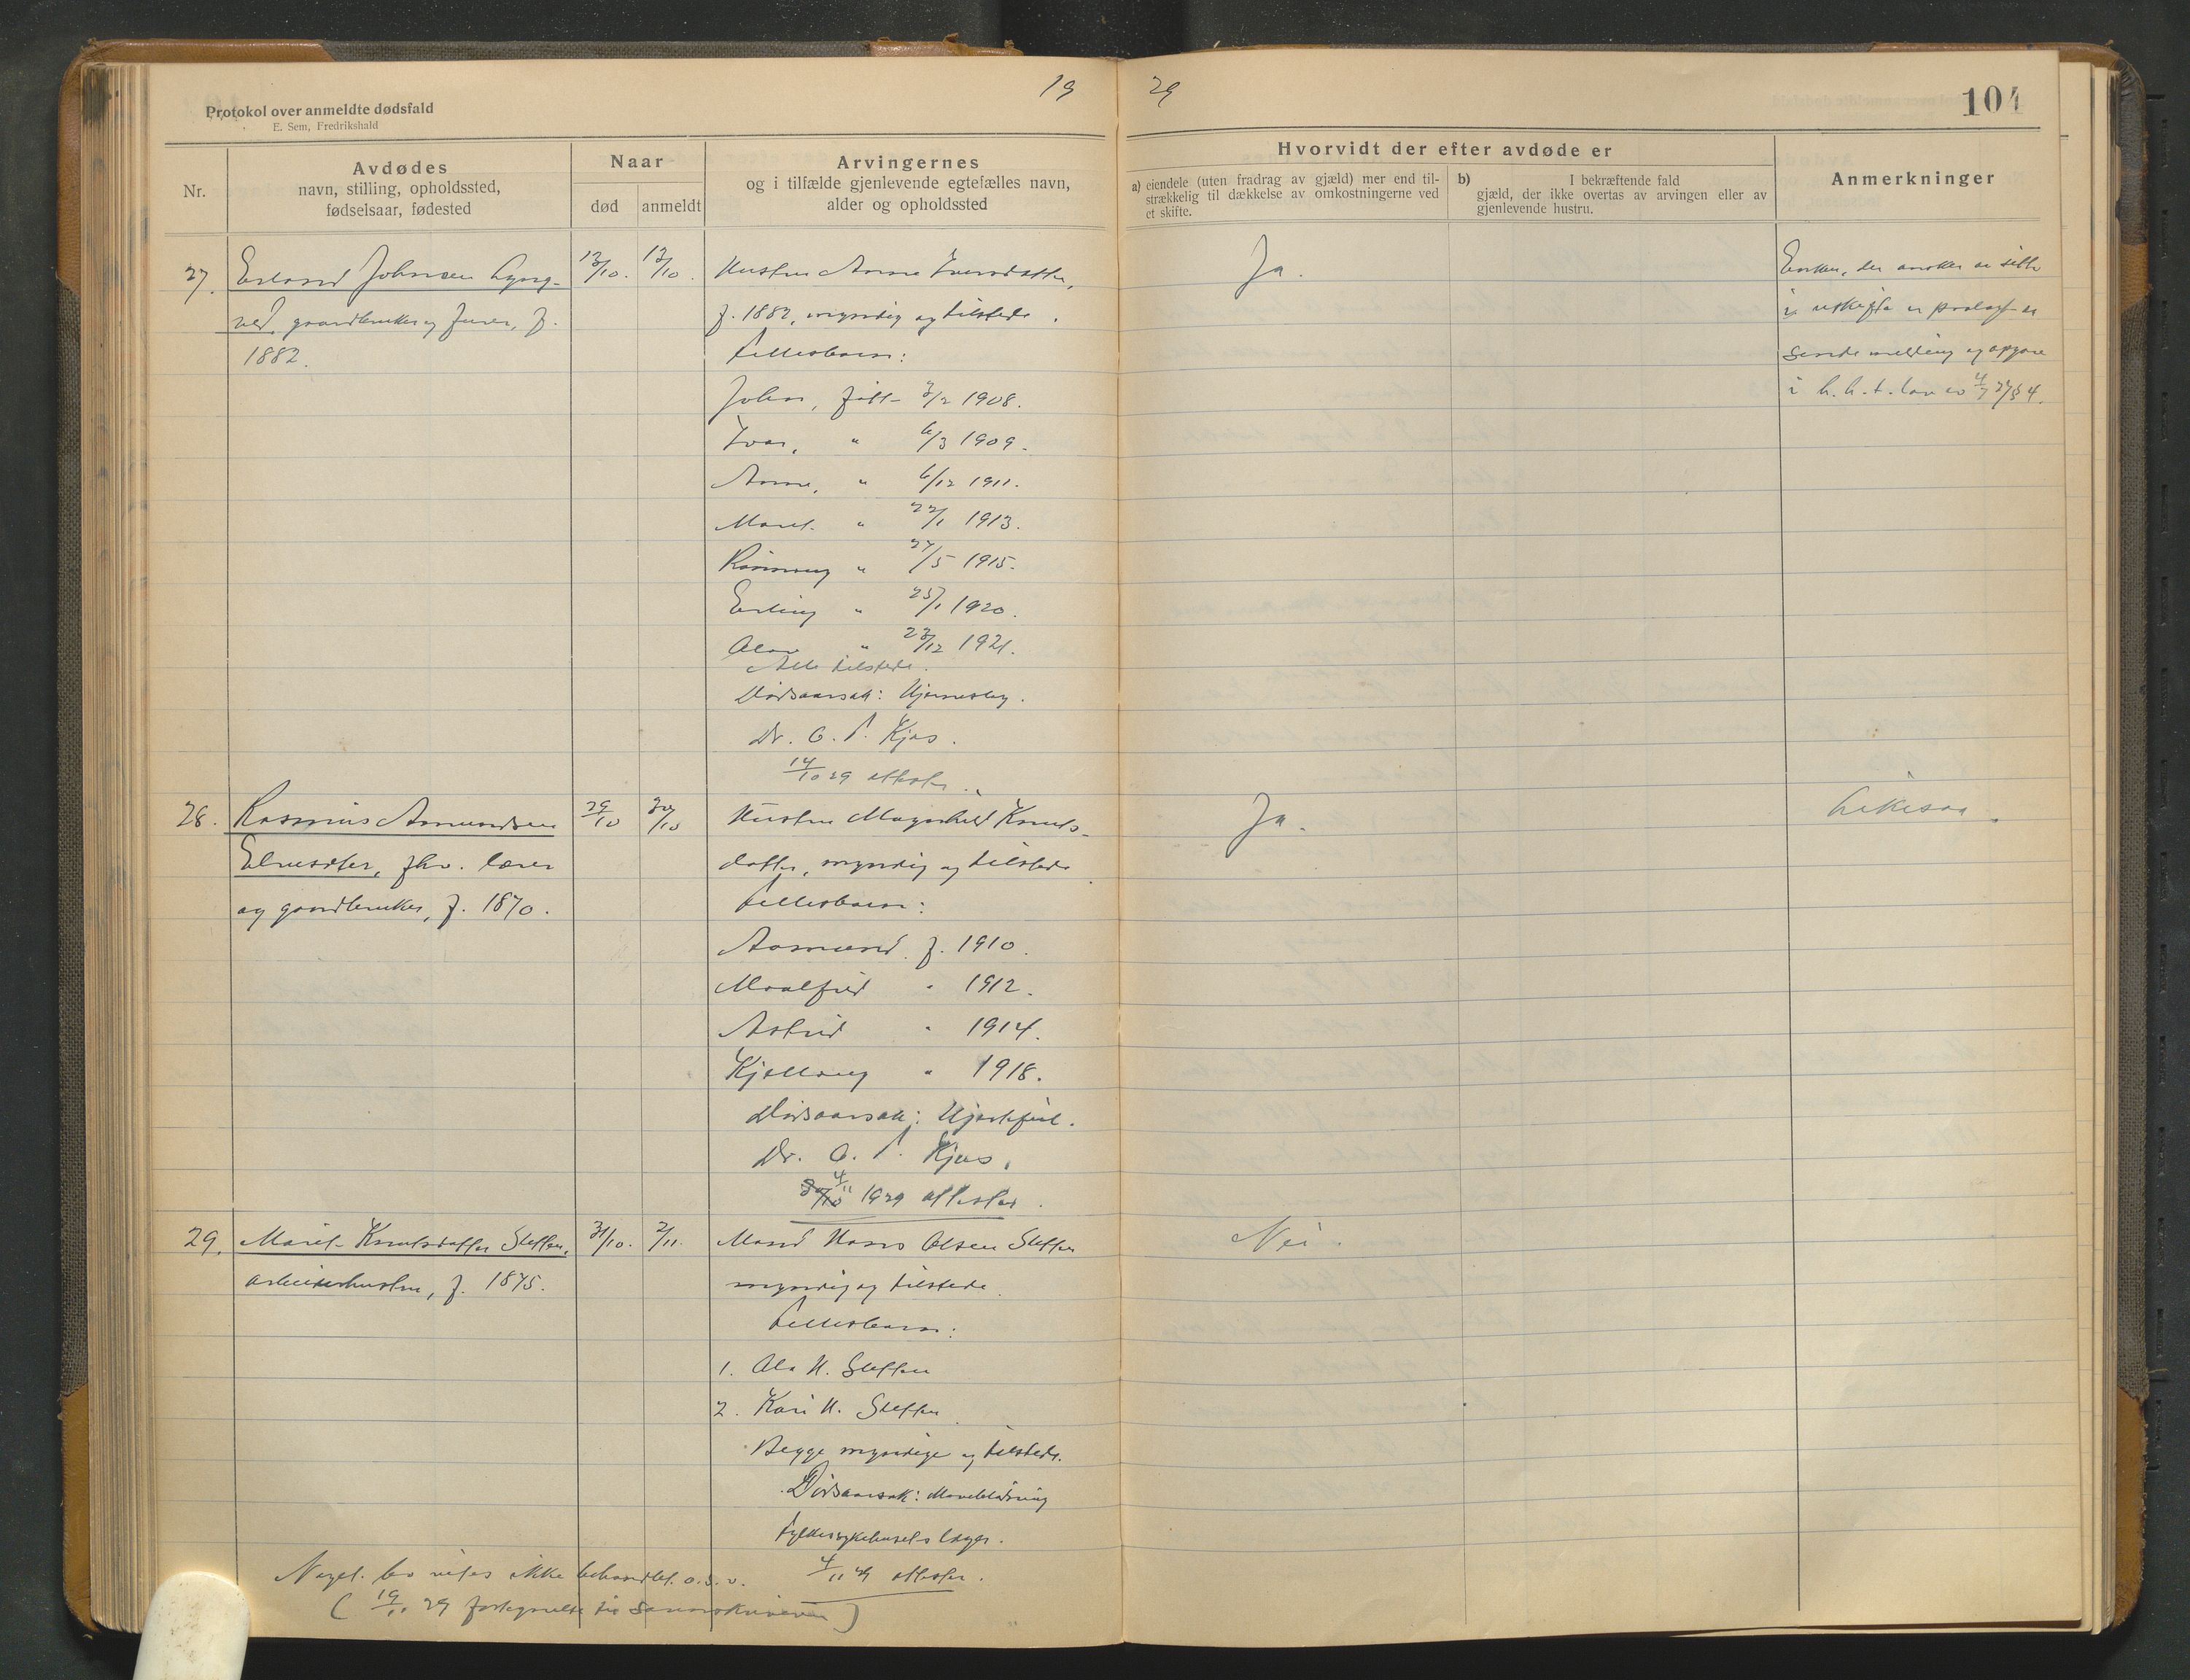 19 29
104
Protokol over anmeldte dødsfald
E. Sem, Fredrikshald
Nr.
Avdødes
navn, stilling, opholdssted,
fødselsaar, fødested
Naar
død anmeldt
Arvingernes
og i tilfælde gjenlevende egtefælles navn,
alder og opholdssted
Hvorvidt der efter avdøde er
a) eiendele (uten fradrag av gjæld) mer end til-
strækkelig til dækkelse av omkostningerne ved
et skifte.
b) I bekræftende fald
gjæld, der ikke overtas av arvingen eller av
gjenlevende hustru.
Anmerkninger
27. Erland Johnsen Lyng-
ved, gaardbruker, f.
1882.
13/10. 13/10.
Hustru Anne Iversdatter,
f. 1882, myndig og tilstede.
Fellesbarn:
John, født 3/2 1908.
Ivar, " 6/3 1909.
Anne, " 6/12 1911.
Marit " 22/1 1913.
Rannveig " 27/5 1915.
Erling " 25/1 1920.
Olav " 23/12 1921.
Alle tilstede.
Dødsaarsak: Hjerneslag.
Dr. O. P. Kjos.
14/10 29 attester.
Ja.
Enken, der ønsker at sitte
i uskifte er paalagt at
sende melding og opgave
i h. h. t. lov av
28. Rasmus Amundsen
Elvesæter, fhv. lærer
og gaardbruker, f. 1870.
29/10 30/10
Hustru Magnhild Knuts-
datter, myndig og tilstede
Fellesbarn:
Aamund f. 1910.
Maalfrid " 1912.
Astrid " 1914.
Kjellaug " 1918.
Dødsaarsak: Hjertefeil.
Dr. O. P. Kjos,
4/11 1929 attester.
Ja.
Likesaa.
29. Marit Knutsdatter Sletten,
arbeiderhustru, f. 1875.
31/10. 2/11.
Mand Hans Olsen Sletten
myndig og tilstede.
Fellesbarn:
1. Ola H. Sletten
2. Kari H. Sletten
Begge myndige og tilstede.
Dødsaarsak: Maveblødning
Fylkessykehusets læge.
4/11 29 attester.
Nei.
ikke behandlet o.s.v.
( 19/11 29 fortegnelse til Sorenskriveren )